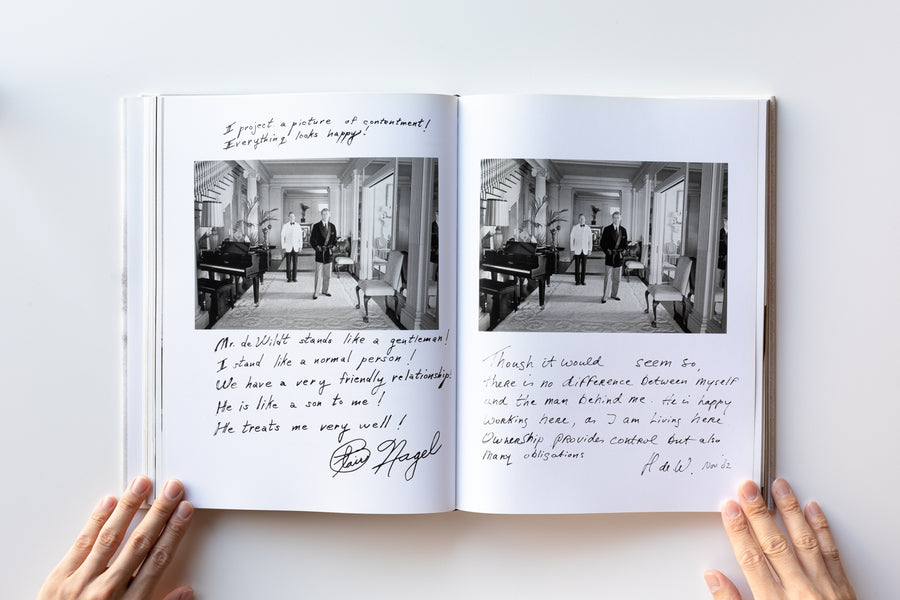 I project a picture of contentment!
Everything looks happy!
Mr. de Wildt stands like a gentleman!
I stand like a normal person!
We have a very friendly relationship!
He is like a son to me!
He treats me very well!
Nagel
Though it would seem so,
there is no difference between myself
and the man behind me. He is happy
working here, as I am living here
Ownership provides control but also
many obligations
H de W. Nov '82